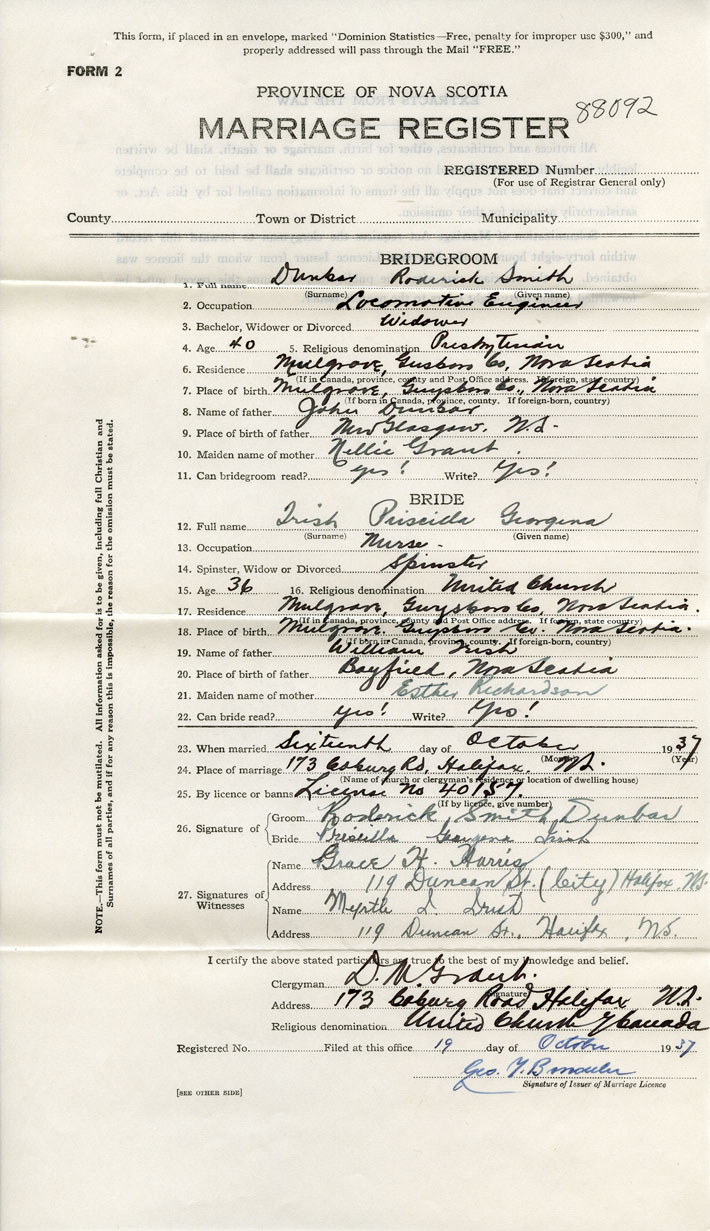 This form, if placed in an envelope, marked "Dominion Statistics—Free, penalty for improper use $300," and
properly addressed will pass through the Mail "FREE."
FORM 2
PROVINCE OF NOVA SCOTIA
88092
MARRIAGE REGISTER
REGISTERED Number
(For use of Registrar General only)
County Town or District Municipality
BRIDEGROOM
1. Full name Dunbar Roderick Smith
(Surname) (Given name)
2. Occupation Locomotive Engineer
3. Bachelor, Widower or Divorced Widower
4. Age 40 5. Religious denomination Presbyterian
6. Residence Mulgrave, Guysboro Co, Nova Scotia
(If in Canada, province, county and Post Office address. If foreign, state country)
7. Place of birth Mulgrave, Guysboro Co., Nova Scotia
(If born in Canada, province, county. If foreign-born, country)
8. Name of father John Dunbar
9. Place of birth of father New Glasgow. N.S.
10. Maiden name of mother Nellie Grant.
11. Can bridegroom read? yes! Write? Yes!
BRIDE
12. Full name Irish Priscilla Georgena
(Surname) (Given name)
13. Occupation Nurse -
14. Spinster, Widow or Divorced Spinster
15. Age 36 16. Religious denomination United Church
17. Residence Mulgrave, Guysboro Co, Nova Scotia.
(If in Canada, province, county and Post Office address. If foreign, state country)
18. Place of birth Mulgrave Guysboro Co. Nova Scotia.
(If born in Canada, province, county. If foreign-born, country)
19. Name of father William Irish
20. Place of birth of father Bayfield, Nova Scotia
21. Maiden name of mother Esther Richardson
22. Can bride read? yes! Write? Yes!
23. When married Sixteenth day of October 1937
(Month) (Year)
24. Place of marriage 173 Coburg Rd, Halifax, N.S.
(Name of church or clergyman's residence or location of dwelling house)
25. By licence or banns License No 40157.
(If by licence, give number)
26. Signature of Groom Roderick Smith Dunbar
Bride Priscilla Georgena Irish
27. Signatures of Witnesses
Name Grace H. Harris
Address 119 Duncan St. (City) Halifax N.S.
Name Myrtle I. Irish
Address 119 Duncan St., Halifax, N.S.
I certify the above stated particulars are true to the best of my knowledge and belief.
Clergyman D. M. Grant.
(Signature)
Address 173 Coburg Road Halifax N.S.
Religious denomination United Church of Canada
Registered No. Filed at this office 19 day of October 1937
Geo. F.
Signature of Issuer of Marriage Licence
[SEE OTHER SIDE]
NOTE.—This form must not be mutilated. All information asked for is to be given, including full Christian and
Surnames of all parties, and if for any reason this is impossible, the reason for the omission must be stated.